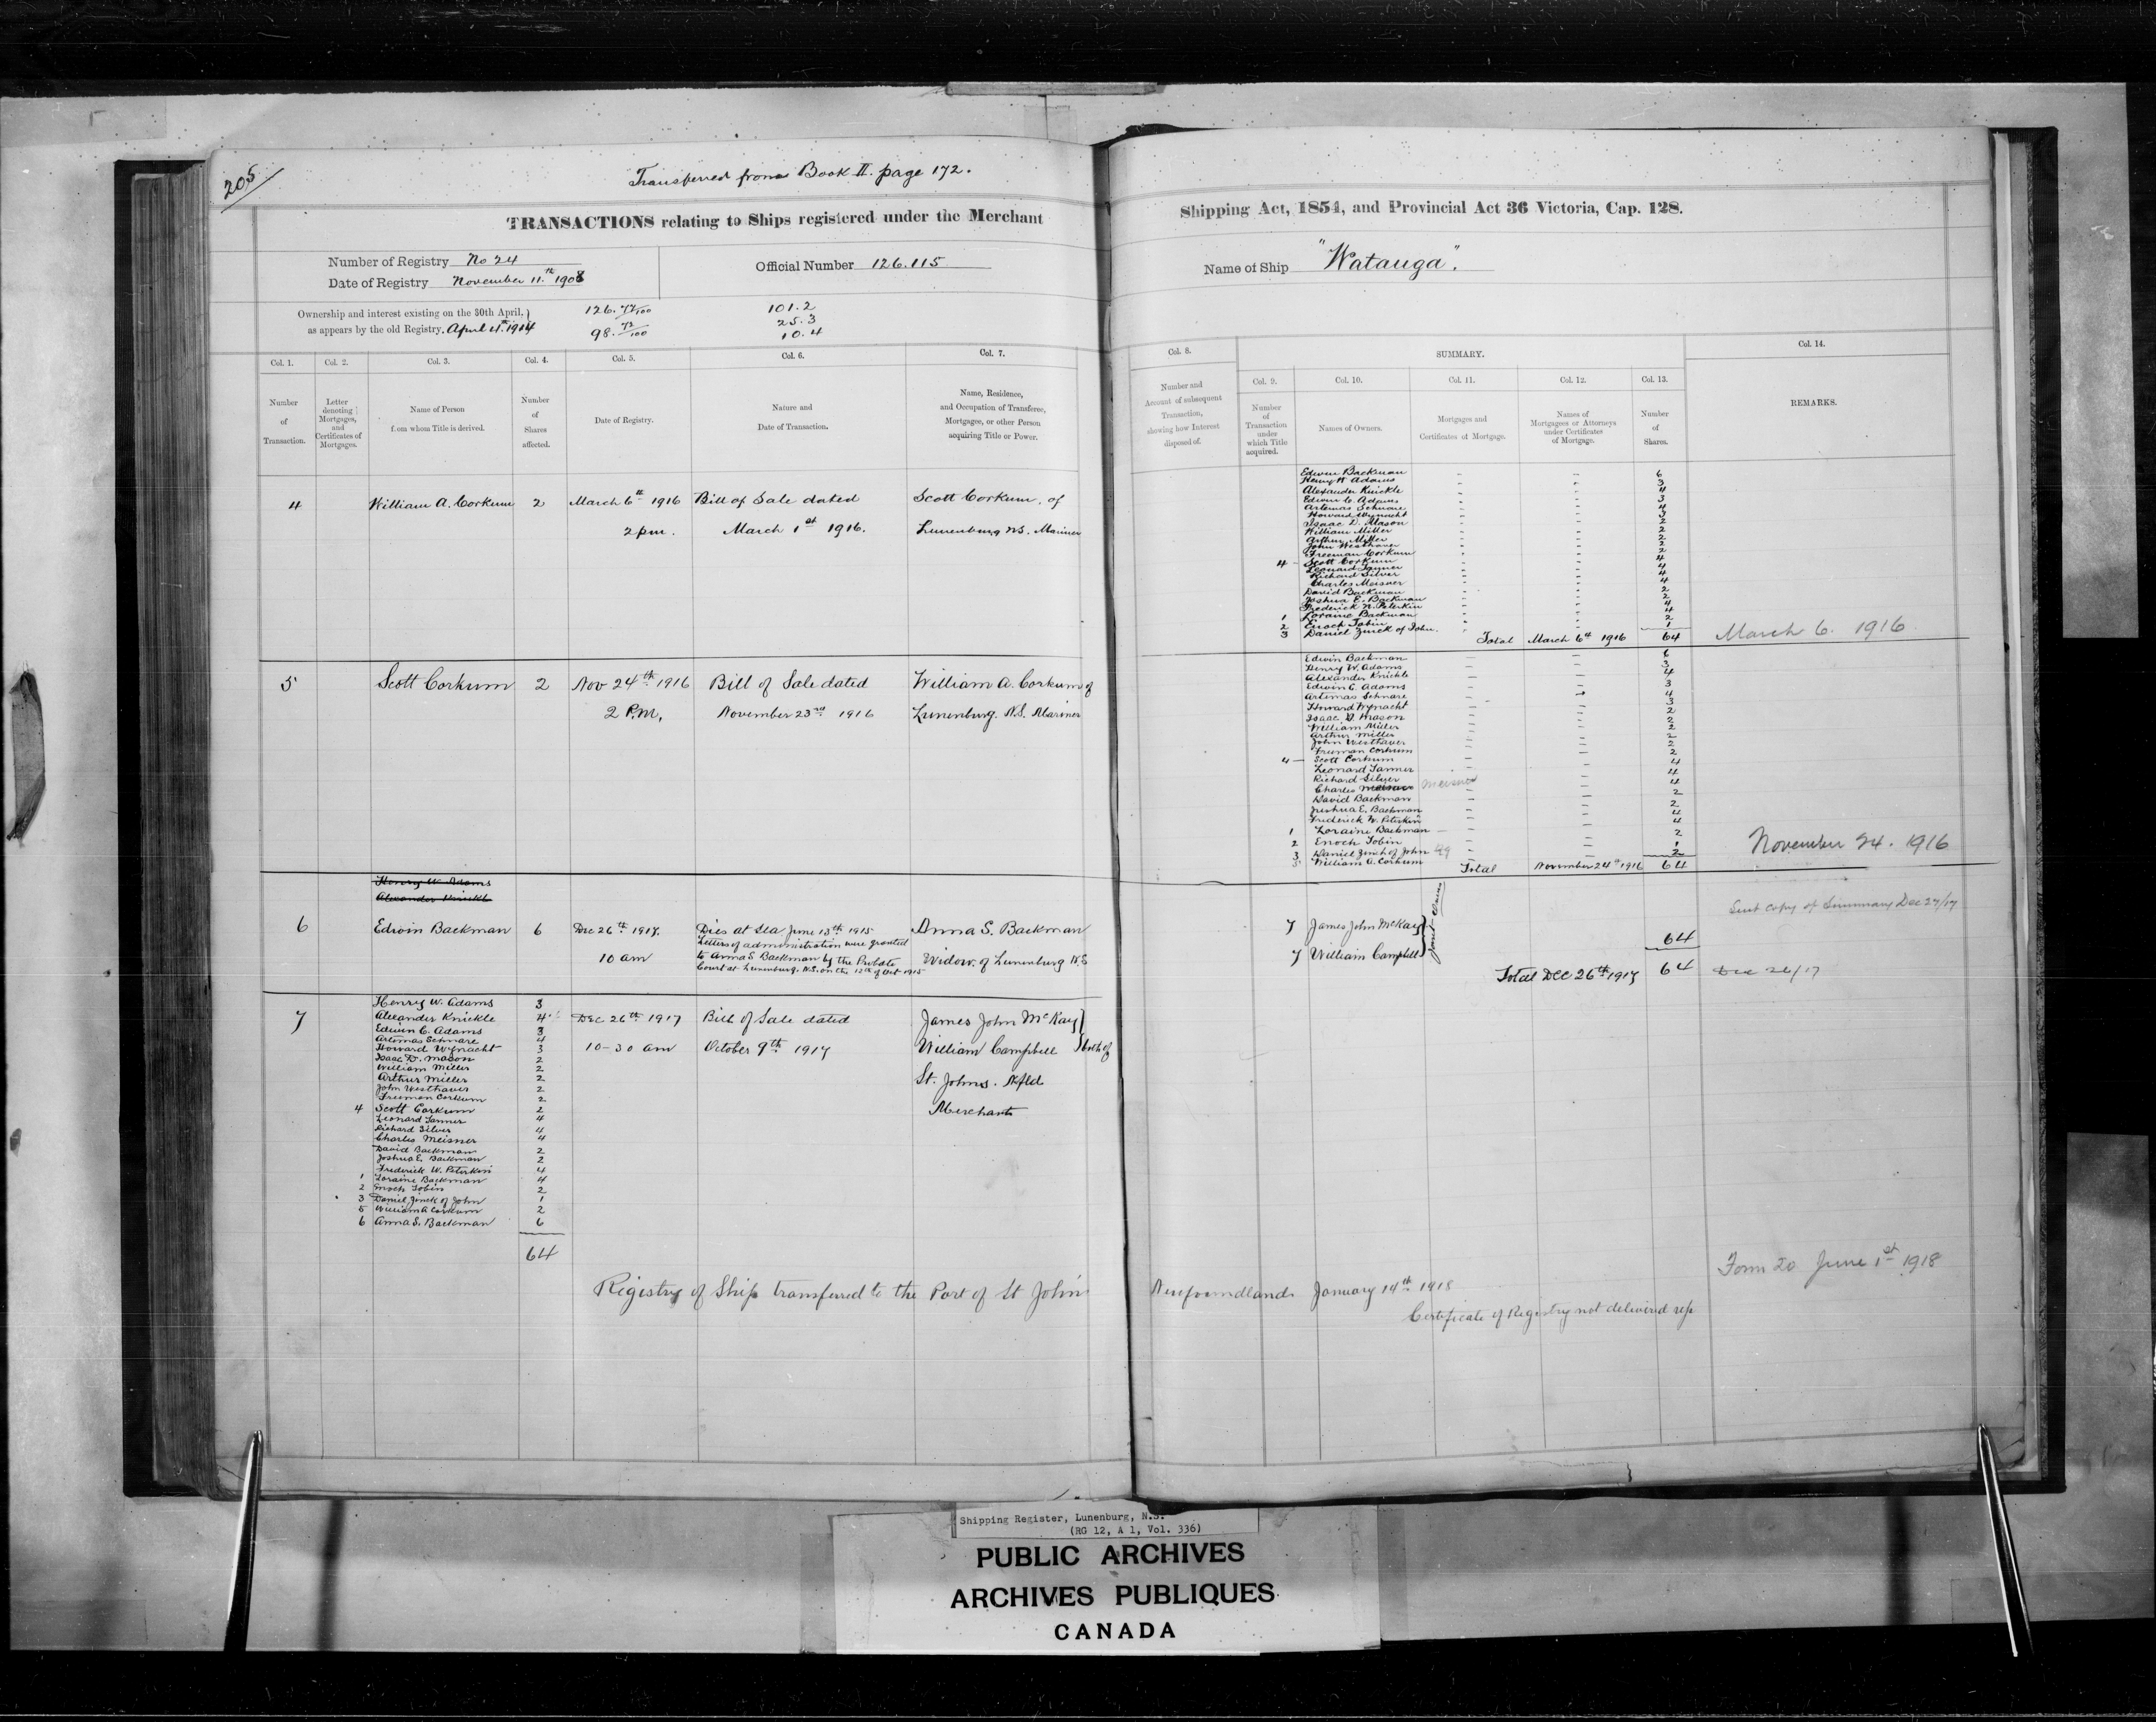 205
Transferred from Book II. page 172.
TRANSACTIONS relating to Ships registered under the Merchant
Number of Registry No 24
Official Number 126.115
Date of Registry November 11.th 1908
Ownership and interest existing on the 30th April,
as appears by the old Registry. April 4th 1914
126. 72/100
98. 72/100
101.2
25.3
10.4
Col. 1. Col. 2. Col. 3. Col. 4. Col. 5. Col. 6. Col. 7.
Number of Transaction.
Letter denoting Mortgages, and Certificates of Mortgages.
Name of Person from whom Title is derived.
Number of Shares affected.
Date of Registry.
Nature and Date of Transaction.
Name, Residence, and Occupation of Transferee, Mortgagee, or other Person acquiring Title or Power.
4 William A. Corkum 2 March 6th 1916 Bill of Sale dated Scott Corkum, of
2 pm. March 1st 1916. Lunenburg NS. Mariner
5 Scott Corkum 2 Nov 24th 1916 Bill of Sale dated William A. Corkum of
2 P.M. November 23rd 1916 Lunenburg. N.S. Mariner
Henry W. Adams
Alexander Knickle
6 Edwin Backman 6 Dec 26th 1917. Dies at Sea June 13th 1915 Anna S. Backman
Letters of administration were granted
10 am to Anna S Backman by the Probate Widow. of Lunenburg N.S
Court at Lunenburg. N.S. on the 12th of Oct 1915
7 Henry W. Adams 3
Alexander Knickle 4 Dec 26th 1917 Bill of Sale dated James John McKay
Edwin C. Adams 3
Artimas Schnare 4
Howard Wynacht 3 10-30 am October 9th 1917 William Campbell both of
Isaac D. Mason 2
William Miller 2
Arthur Miller 2 St. Johns. Nfld
John Westhaver 2
Freeman Corkum 2
4 Scott Corkum 2 Merchants
Leonard Tanner 4
Richard Silver 4
Charles Meisner 4
David Backman 2
Joshua E. Backman 2
Frederick W. Peterkin 4
1 Loraine Backman 4
2 Enoch Tobin 2
3 Daniel Zinck of John 1
5 William A Corkum 2
6 Anna S. Backman 6
64
Registry of Ship transferred to the Port of St John
Shipping Act, 1854, and Provincial Act 36 Victoria, Cap. 128.
Name of Ship "Watauga".
Col. 8. SUMMARY. Col. 14.
Col. 9. Col. 10. Col. 11. Col. 12. Col. 13.
Number and Account of subsequent Transaction, showing how Interest disposed of.
Number of Transaction under which Title acquired.
Names of Owners.
Mortgages and Certificates of Mortgage.
Names of Mortgagees or Attorneys under Certificates of Mortgage.
Number of Shares.
REMARKS.
Edwin Backman 6
Henry W Adams 3
Alexander Knickle 4
Edwin C. Adams 3
Artemas Schnare 4
Howard Wynacht 3
Isaac D. Mason 2
William Miller 2
Arthur Miller 2
John Westhaver 2
Freeman Corkum 2
4 - Scott Corkum 4
Leonard Tanner 4
Richard Silver 4
Charles Meisner 4
David Backman 2
Joshua E. Backman 2
Frederick W. Peterkin 4
1 Loraine Backman 4
2 Enoch Tobin 2
3 Daniel Zinck of John. 1
Total March 6th 1916 64 March 6. 1916
Edwin Backman 6
Henry W. Adams 3
Alexander Knickle 4
Edwin C. Adams 3
Artimas Schnare 4
Howard Wynacht 3
Isaac. D. Mason 2
William Miller 2
Arthur Miller 2
John Westhaver 2
Freeman Corkum 2
4 - Scott Corkum
Leonard Tanner 4
Richard Silver 4
Charles Meisner Meisner 4
David Backman 2
Joshua E. Backman 2
Frederick W. Peterkin 4
1 Loraine Backman 4
2 Enoch Tobin 2
3 Daniel Zinck of John 1
5 William A. Corkum 2
Total November 24th 1916 64 November 24. 1916
Sent copy of Summary Dec 27/17
7 James John McKay
7 William Campbell
Joint Owners
64
Total Dec 26th 1917 64 Dec 26/17
Form 20 June 1st 1918
Newfoundland January 14th 1918
Certificate of Registry not delivered up
Shipping Register, Lunenburg, N.S.
(RG 12, A 1, Vol. 336)
PUBLIC ARCHIVES
ARCHIVES PUBLIQUES
CANADA